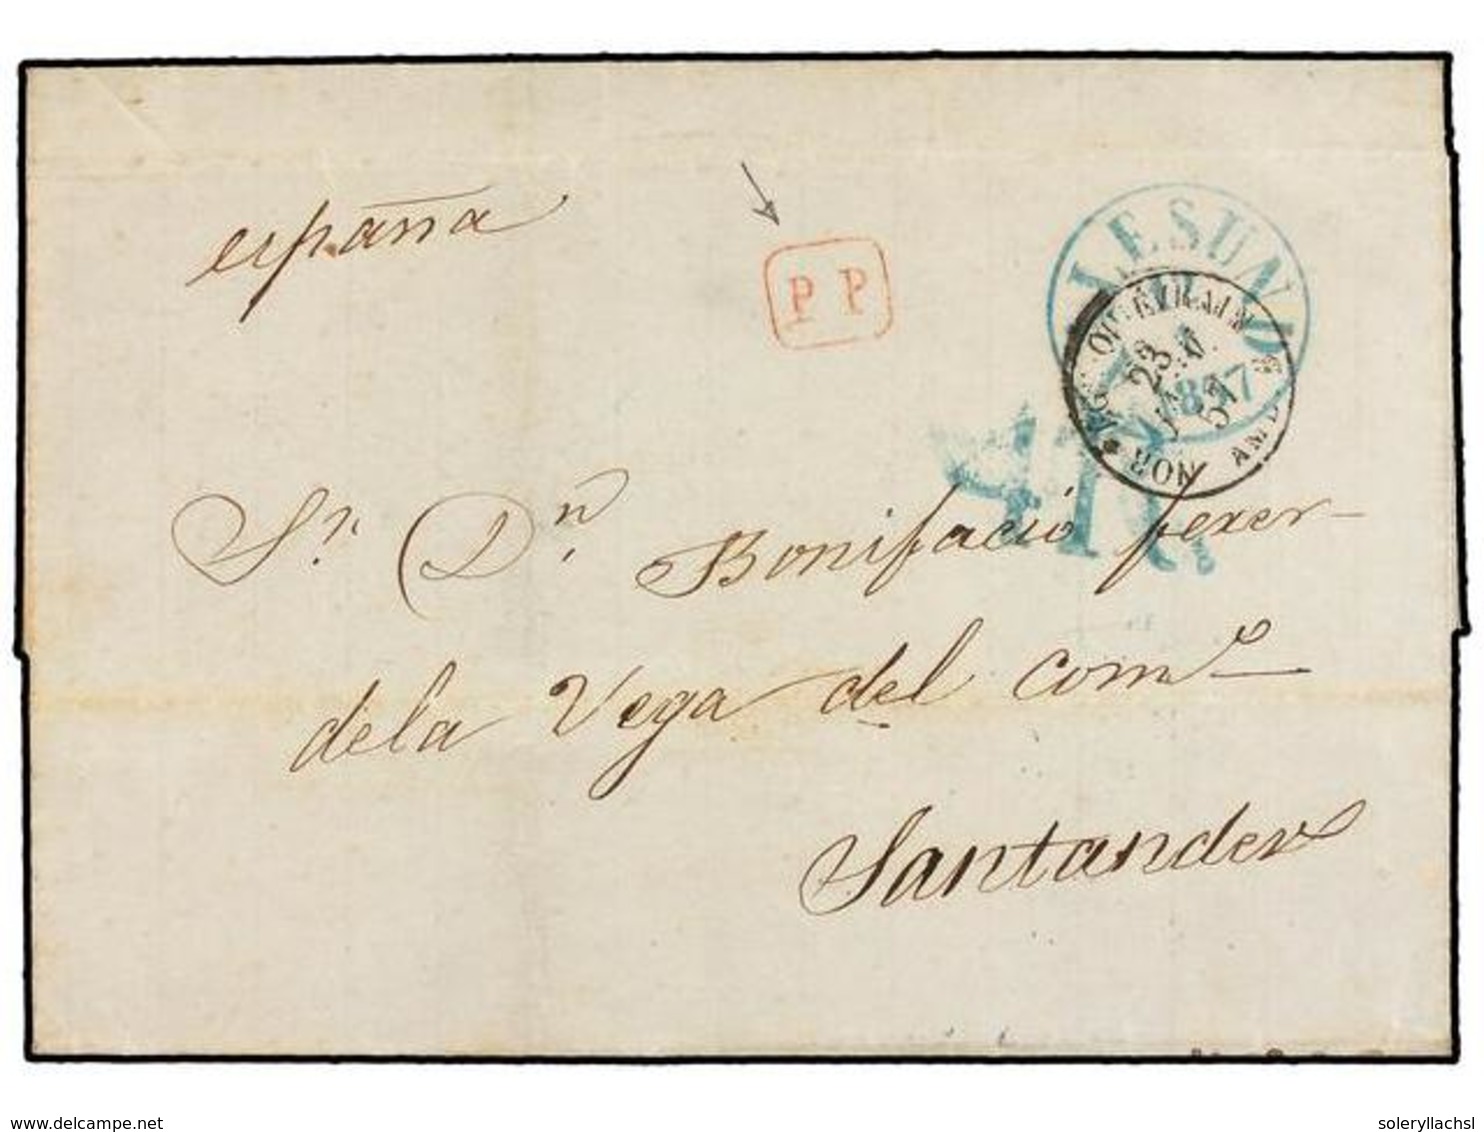 españa
P P
LESUND
1857
NOR
AMB
23
57
4R.
Sr. Dn. Bonifacio ferer-
dela Vega del comº
Santander
www.delcampe.net
soleryllachsl